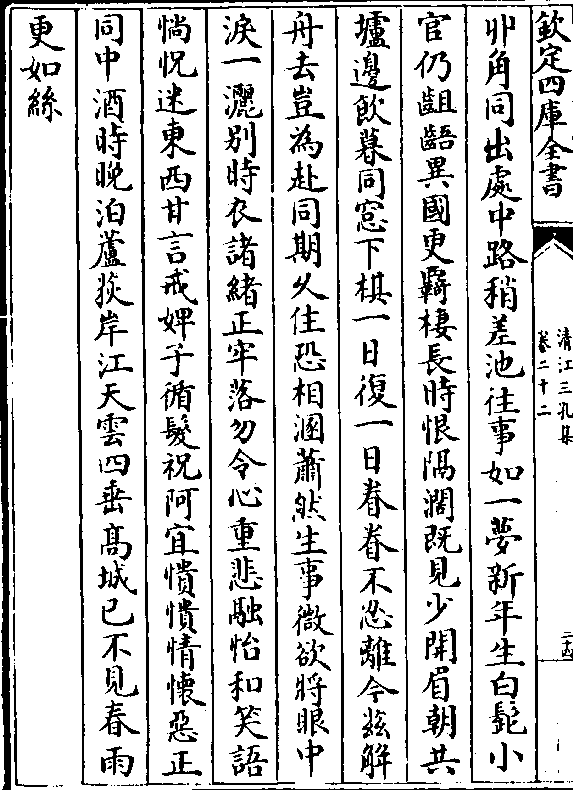 欽定四庫全書
清江三孔集
卷二十二
二十四
丱角同出處中路稍差池往事如一夢新年生白髭小
官仍齟齬異國更羇棲長時恨隔濶既見少開眉朝共
壚邊飲暮同窓下棋一日復一日眷眷不忍離今兹解
舟去豈為赴同期久住恐相溷蕭然生事微欲將眼中
淚一灑别時衣諸緒正牢落勿令心重悲融怡和笑語
惝怳迷東西甘言戒婢子循髮祝阿宜憒憒情懷惡正
同中酒時晚泊蘆荻岸江天雲四垂髙城已不見春雨
更如絲